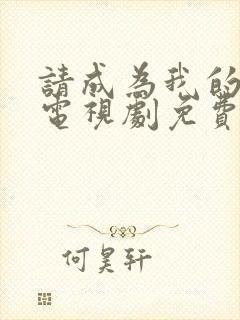 請成為我的
電視劇免費
何昊軒